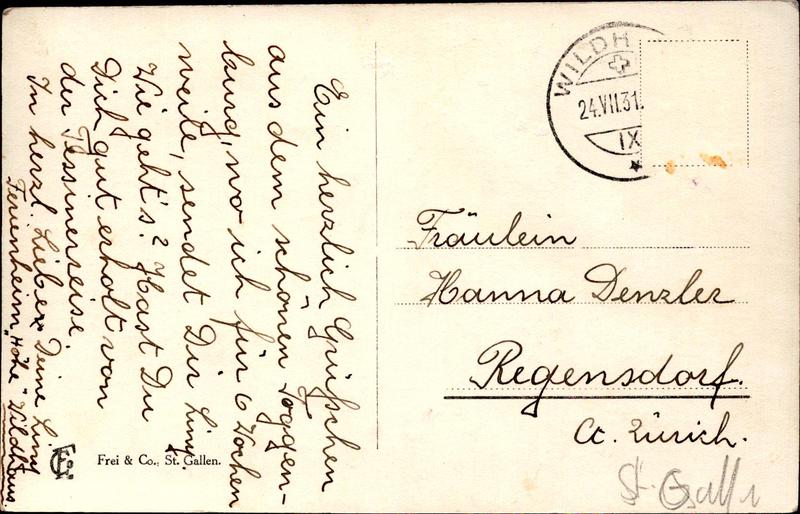 Ein herzlich Grüsschen
aus dem schönen Toggen-
burg, wo ich für 6 Wochen
weile, sendet Dir Liny.
Wie geht's? Hast Du
Dich gut erholt von
der Tessinerreise.
In herzl. Liebe Deine Liny
Ferienheim "Höhe" Wildhaus.
Frei & Co., St. Gallen.
WILDH
24.VII.31.
IX
Fräulein
Hanna Denzler
Regensdorf.
Ct. Zürich.
St. Galle